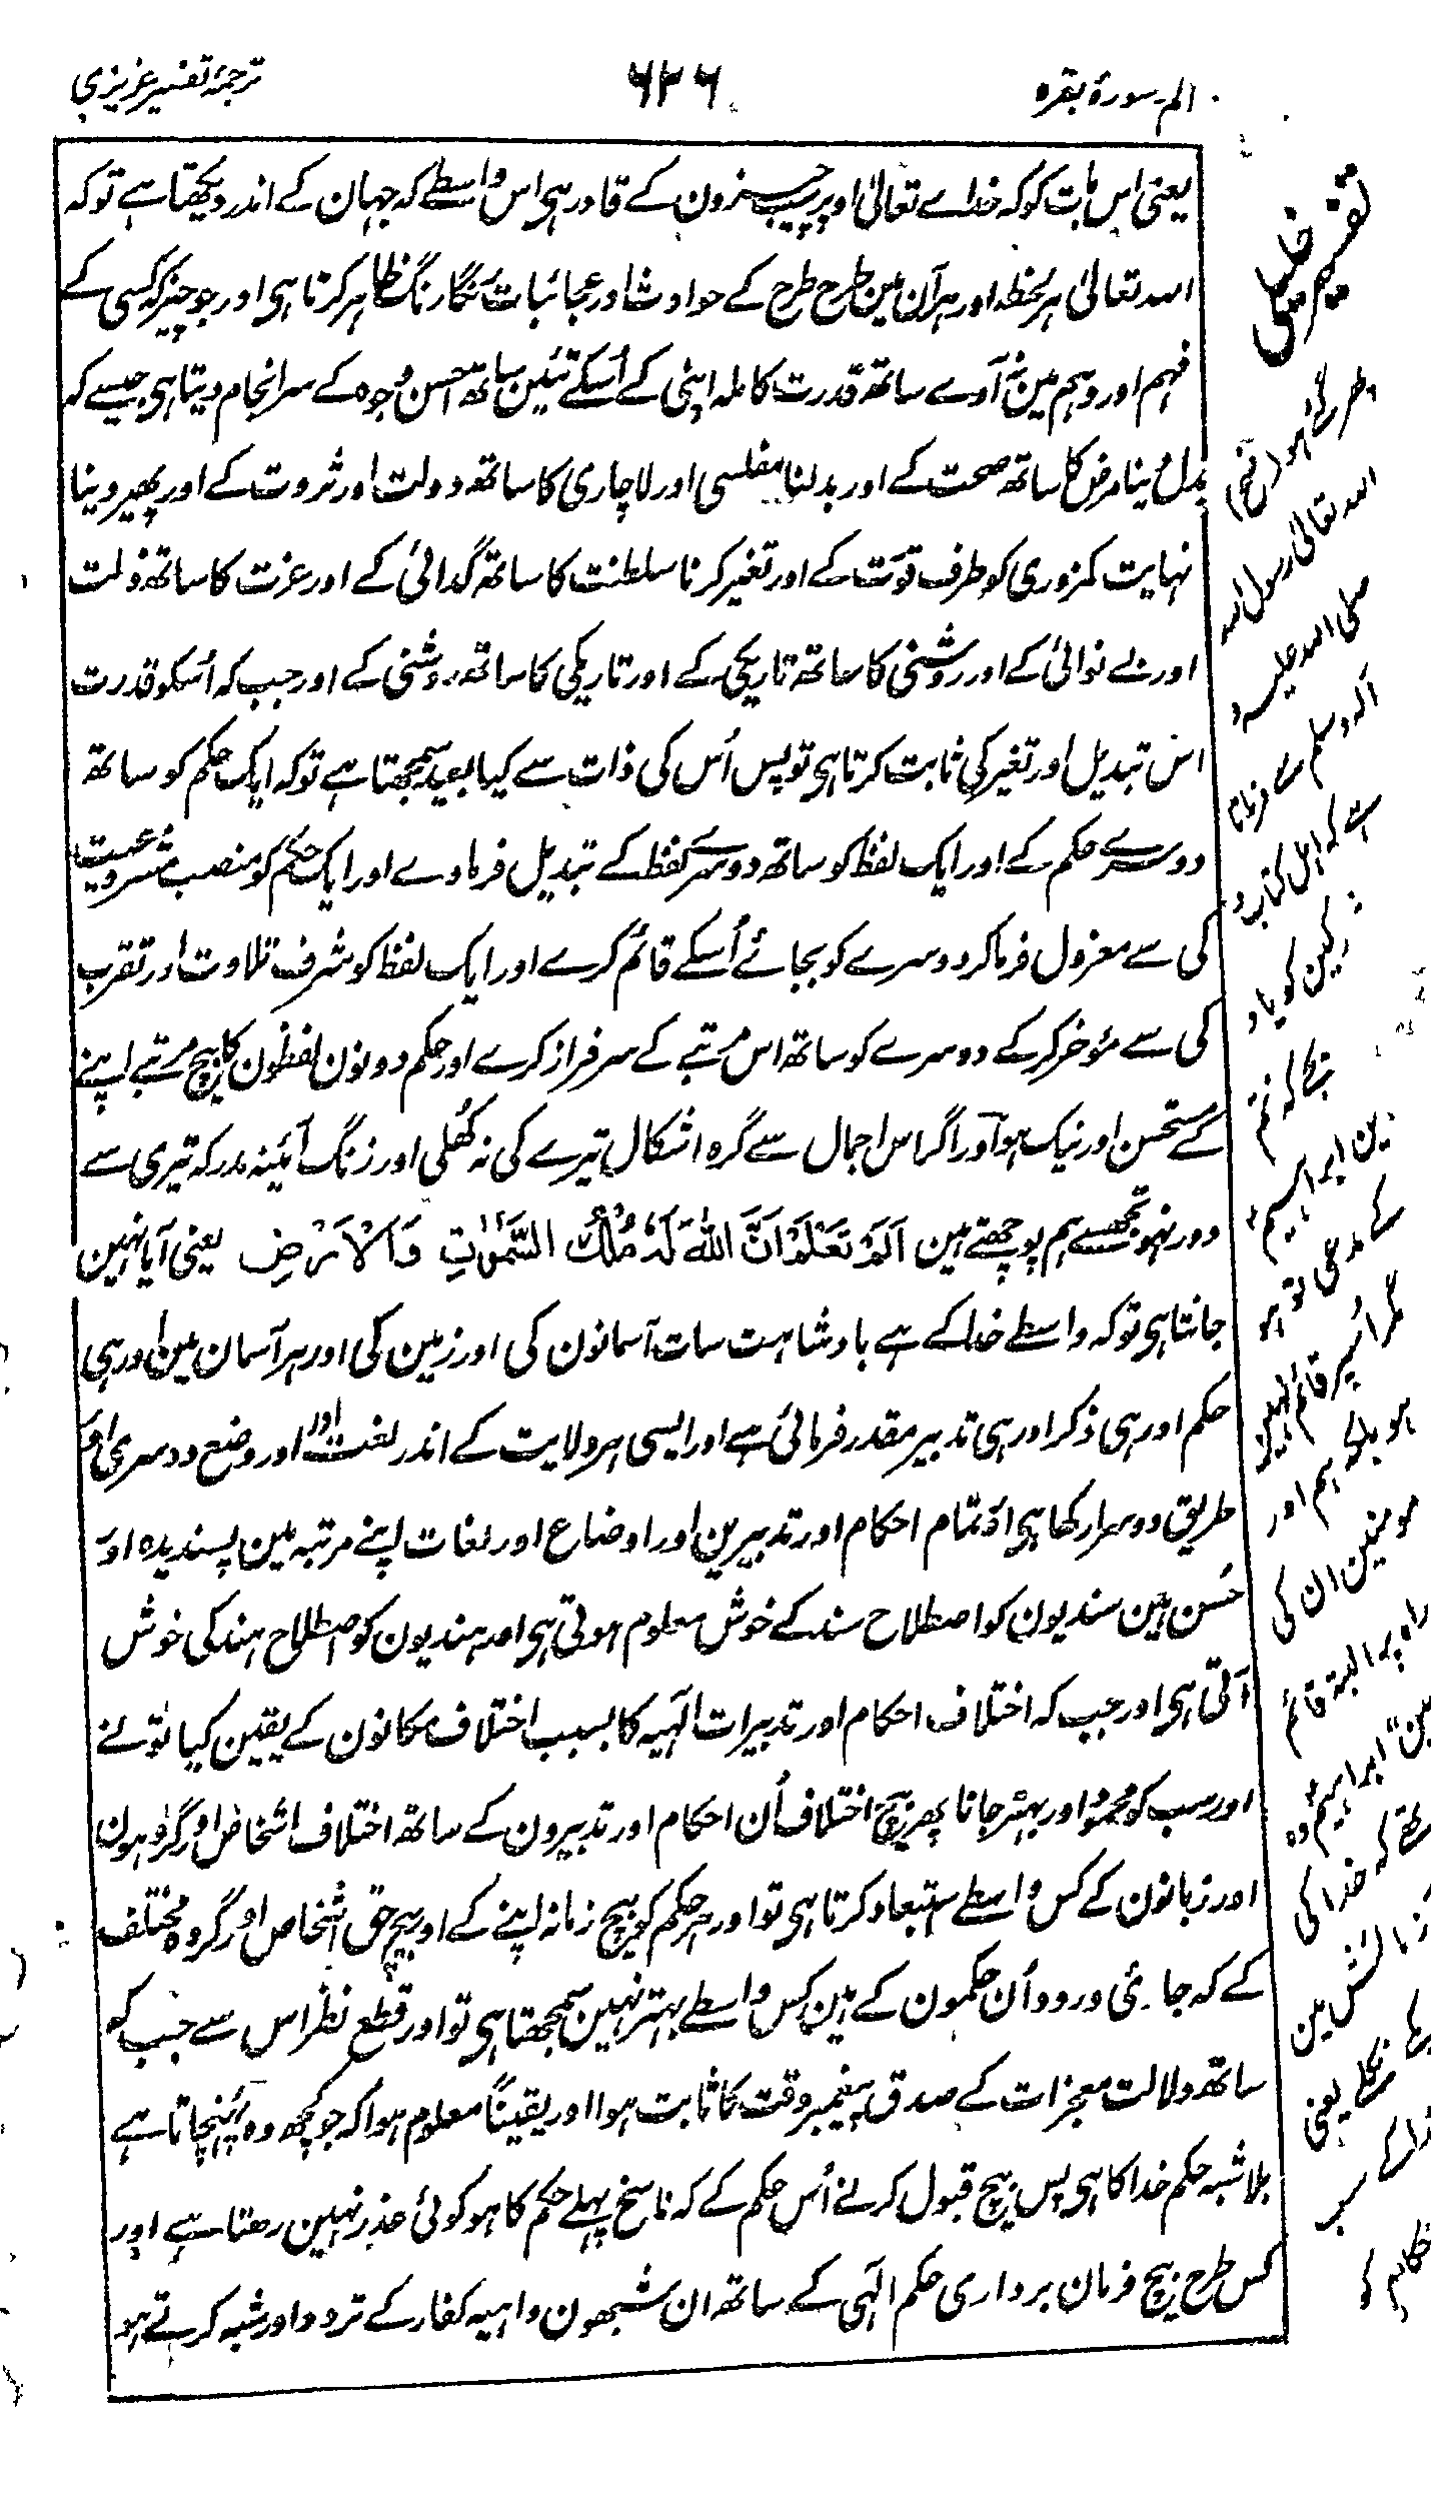 الم۔سورۂ بقرہ
۶۲۶
ترجمۂ تفسیر عزیزی
یعنی اس بات کو کہ خداے تعالیٰ اوپر سب چیزون کے قادر ہی اس واسطے کہ جہان کے اندر دیکھتا ہے تو کہ
اللہ تعالیٰ ہر لحظہ اور ہر آن مین طرح طرح کے حوادث اور عجائبات رنگارنگ ظاہر کرتا ہی اور جو چیز کہ کسی کے
فہم اور وہم مین نہ آوے ساتھ قدرت کاملہ اپنی کے اُسکے تئین ساتھ احسن وجوہ کے سرانجام دیتا ہی جیسے کہ
بدل دینا مرض کا ساتھ صحت کے اور بدلنا مفلسی اور لاچاری کا ساتھ دولت اور ثروت کے اور پھیر دینا
نہایت کمزوری کو طرف قوت کے اور تغیر کرنا سلطنت کا ساتھ گدائی کے اور عزت کا ساتھ ذلت
اور بے نوائی کے اور روشنی کا ساتھ تاریکی کے اور تاریکی کا ساتھ روشنی کے اور جب کہ اُسکو قدرت
اس تبدیل اور تغیر کی ثابت کرتا ہی تو پس اُس کی ذات سے کیا بعید سمجھتا ہے تو کہ ایک حکم کو ساتھ
دوسرے حکم کے اور ایک لفظ کو ساتھ دوسرے لفظ کے تبدیل فرماوے اور ایک حکم کو منصب مشروعیت
کی سے معزول فرما کر دوسرے کو بجائے اُسکے قائم کرے اور ایک لفظ کو شرف تلاوت اور تقرب
کی سے مؤخر کر کے دوسرے کو ساتھ اس مرتبے کے سرفراز کرے اور حکم دونون لفظون کا بیچ مرتبے اپنے
کے مستحسن اور نیک ہو اور اگر اس اجمال سے گرہ اشکال تیرے کی نہ کُھلی اور زنگ آئینہ مدرکہ تیری سے
دور نہو تجھسے ہم پوچھتے ہین اَلَمْ تَعْلَمْ اَنَّ اللّٰهَ لَهٗ مُلْكُ السَّمٰوٰتِ وَالْاَرْضِ یعنی آیا نہین
جانتا ہی تو کہ واسطے خدا کے ہے بادشاہت سات آسمانون کی اور زمین کی اور ہر آسمان مین اور ہی
حکم اور ہی ذکر اور ہی تدبیر مقدر فرمائی ہے اور ایسی ہر ولایت کے اندر لغت اور اور وضع دوسری اور
طریق دوسرا رکھا ہی اور تمام احکام اور تدبیرین اور اوضاع اور لغات اپنے مرتبہ مین پسندیدہ اور
حُسن ہین سندیون کو اصطلاح سند کے خوش معلوم ہوتی ہی اور ہندیون کو اصطلاح ہند کی خوش
آتی ہی اور جب کہ اختلاف احکام اور تدبیرات الٰہیہ کا بسبب اختلاف مکانون کے یقین کیا تو نے
اور سب کو محمود اور بہتر جانا پھر بیچ اختلاف اُن احکام اور تدبیرون کے ساتھ اختلاف اشخاص اور گروہون
اور زبانون کے کس واسطے استبعاد کرتا ہی تو اور ہر حکم کو بیچ زمانہ اپنے کے اور بیچ حق اشخاص اور گروہ مختلف
کے کہ جائی ورود اُن حکمون کے ہین کس واسطے بہتر نہین سمجھتا ہی تو اور قطع نظر اس سے جب کہ
ساتھ دلالت معجزات کے صدق پیغمبر وقت کا ثابت ہوا اور یقیناً معلوم ہوا کہ جو کچھ وہ پہنچاتا ہے
بلا شبہ حکم خدا کا ہی پس بیچ قبول کرنے اُس حکم کے کہ ناسخ پہلے حکم کا ہو کوئی عذر نہین رہتا ہے اور
کس طرح بیچ فرمان برداری حکم الٰہی کے ساتھ ان شبھون واہیہ کفار کے تردد اور شبہ کرتے ہو
اللہ تعالیٰ رسول اللہ
صلی اللہ علیہ و
آلہ وسلم سے فرماتا
ہے کہ اہل کتاب و
دین ابراہیم
کے مدعی تو ہو
مگر اُسپر قائم نہین
ہو بلکہ ہم اور
مومنین ان کی
راہ پر البتہ قائم
ہین ابراہیم وہ
تھے کہ خدا کی